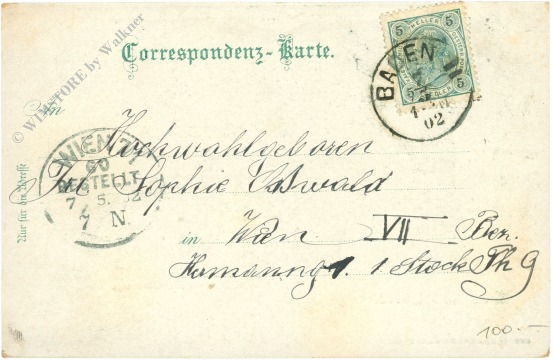 © WIMSTORE by Walkner
5 HELLER 5
5 5
Correspondenz-Karte.
BADEN
02
An
WIEN 7/1
60
BESTELLT
7 5. 02
7 N.
Hochwohlgeboren
Frl Sophie Oswald
in Wien VII Bez.
Hermanng 1. 1 Stock Th 9
Nur für die Adresse
100.—